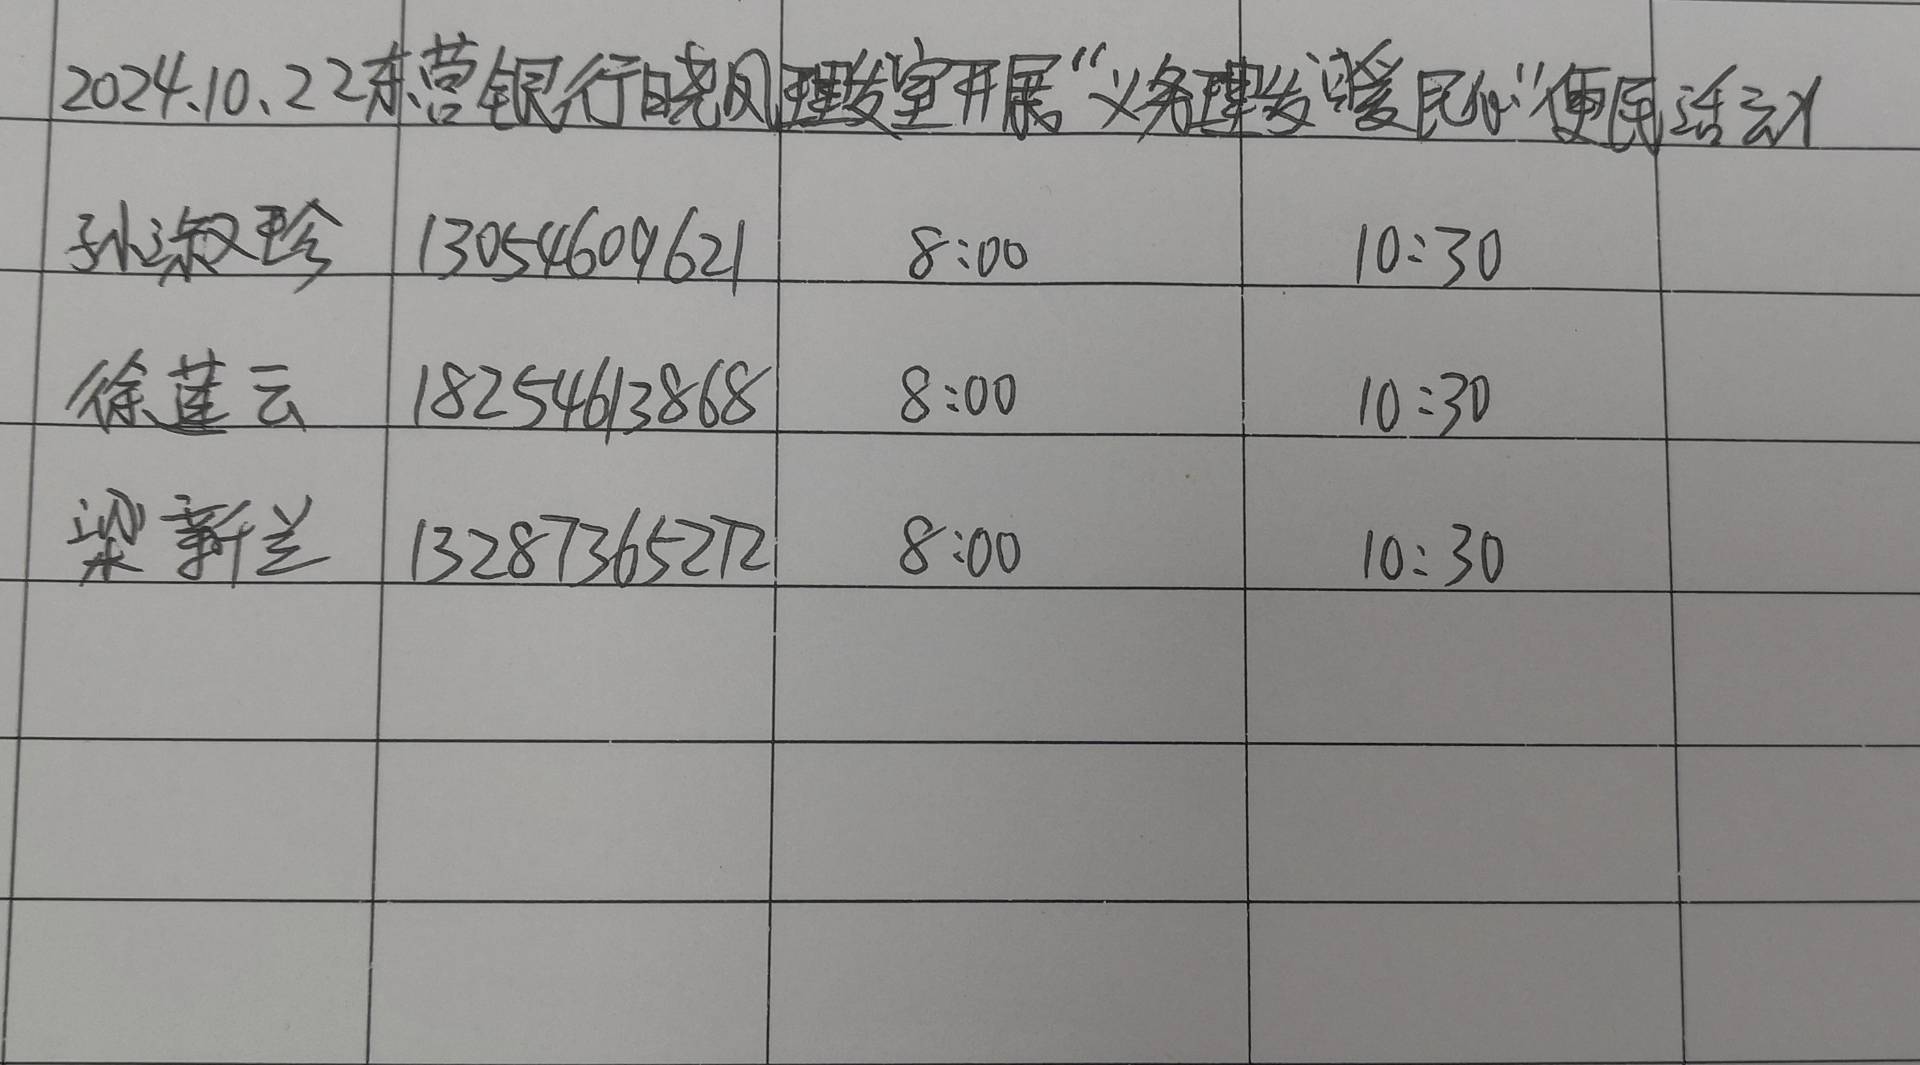 2024.10.22东营银行晓风理发室开展“义务理发暖民心”便民活动
孙淑珍 13054609621 8:00 10:30
徐莲云 18254613868 8:00 10:30
梁新兰 13287365272 8:00 10:30